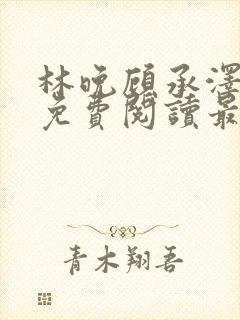 林晚顾承泽
免費閱讀最
青木翔吾